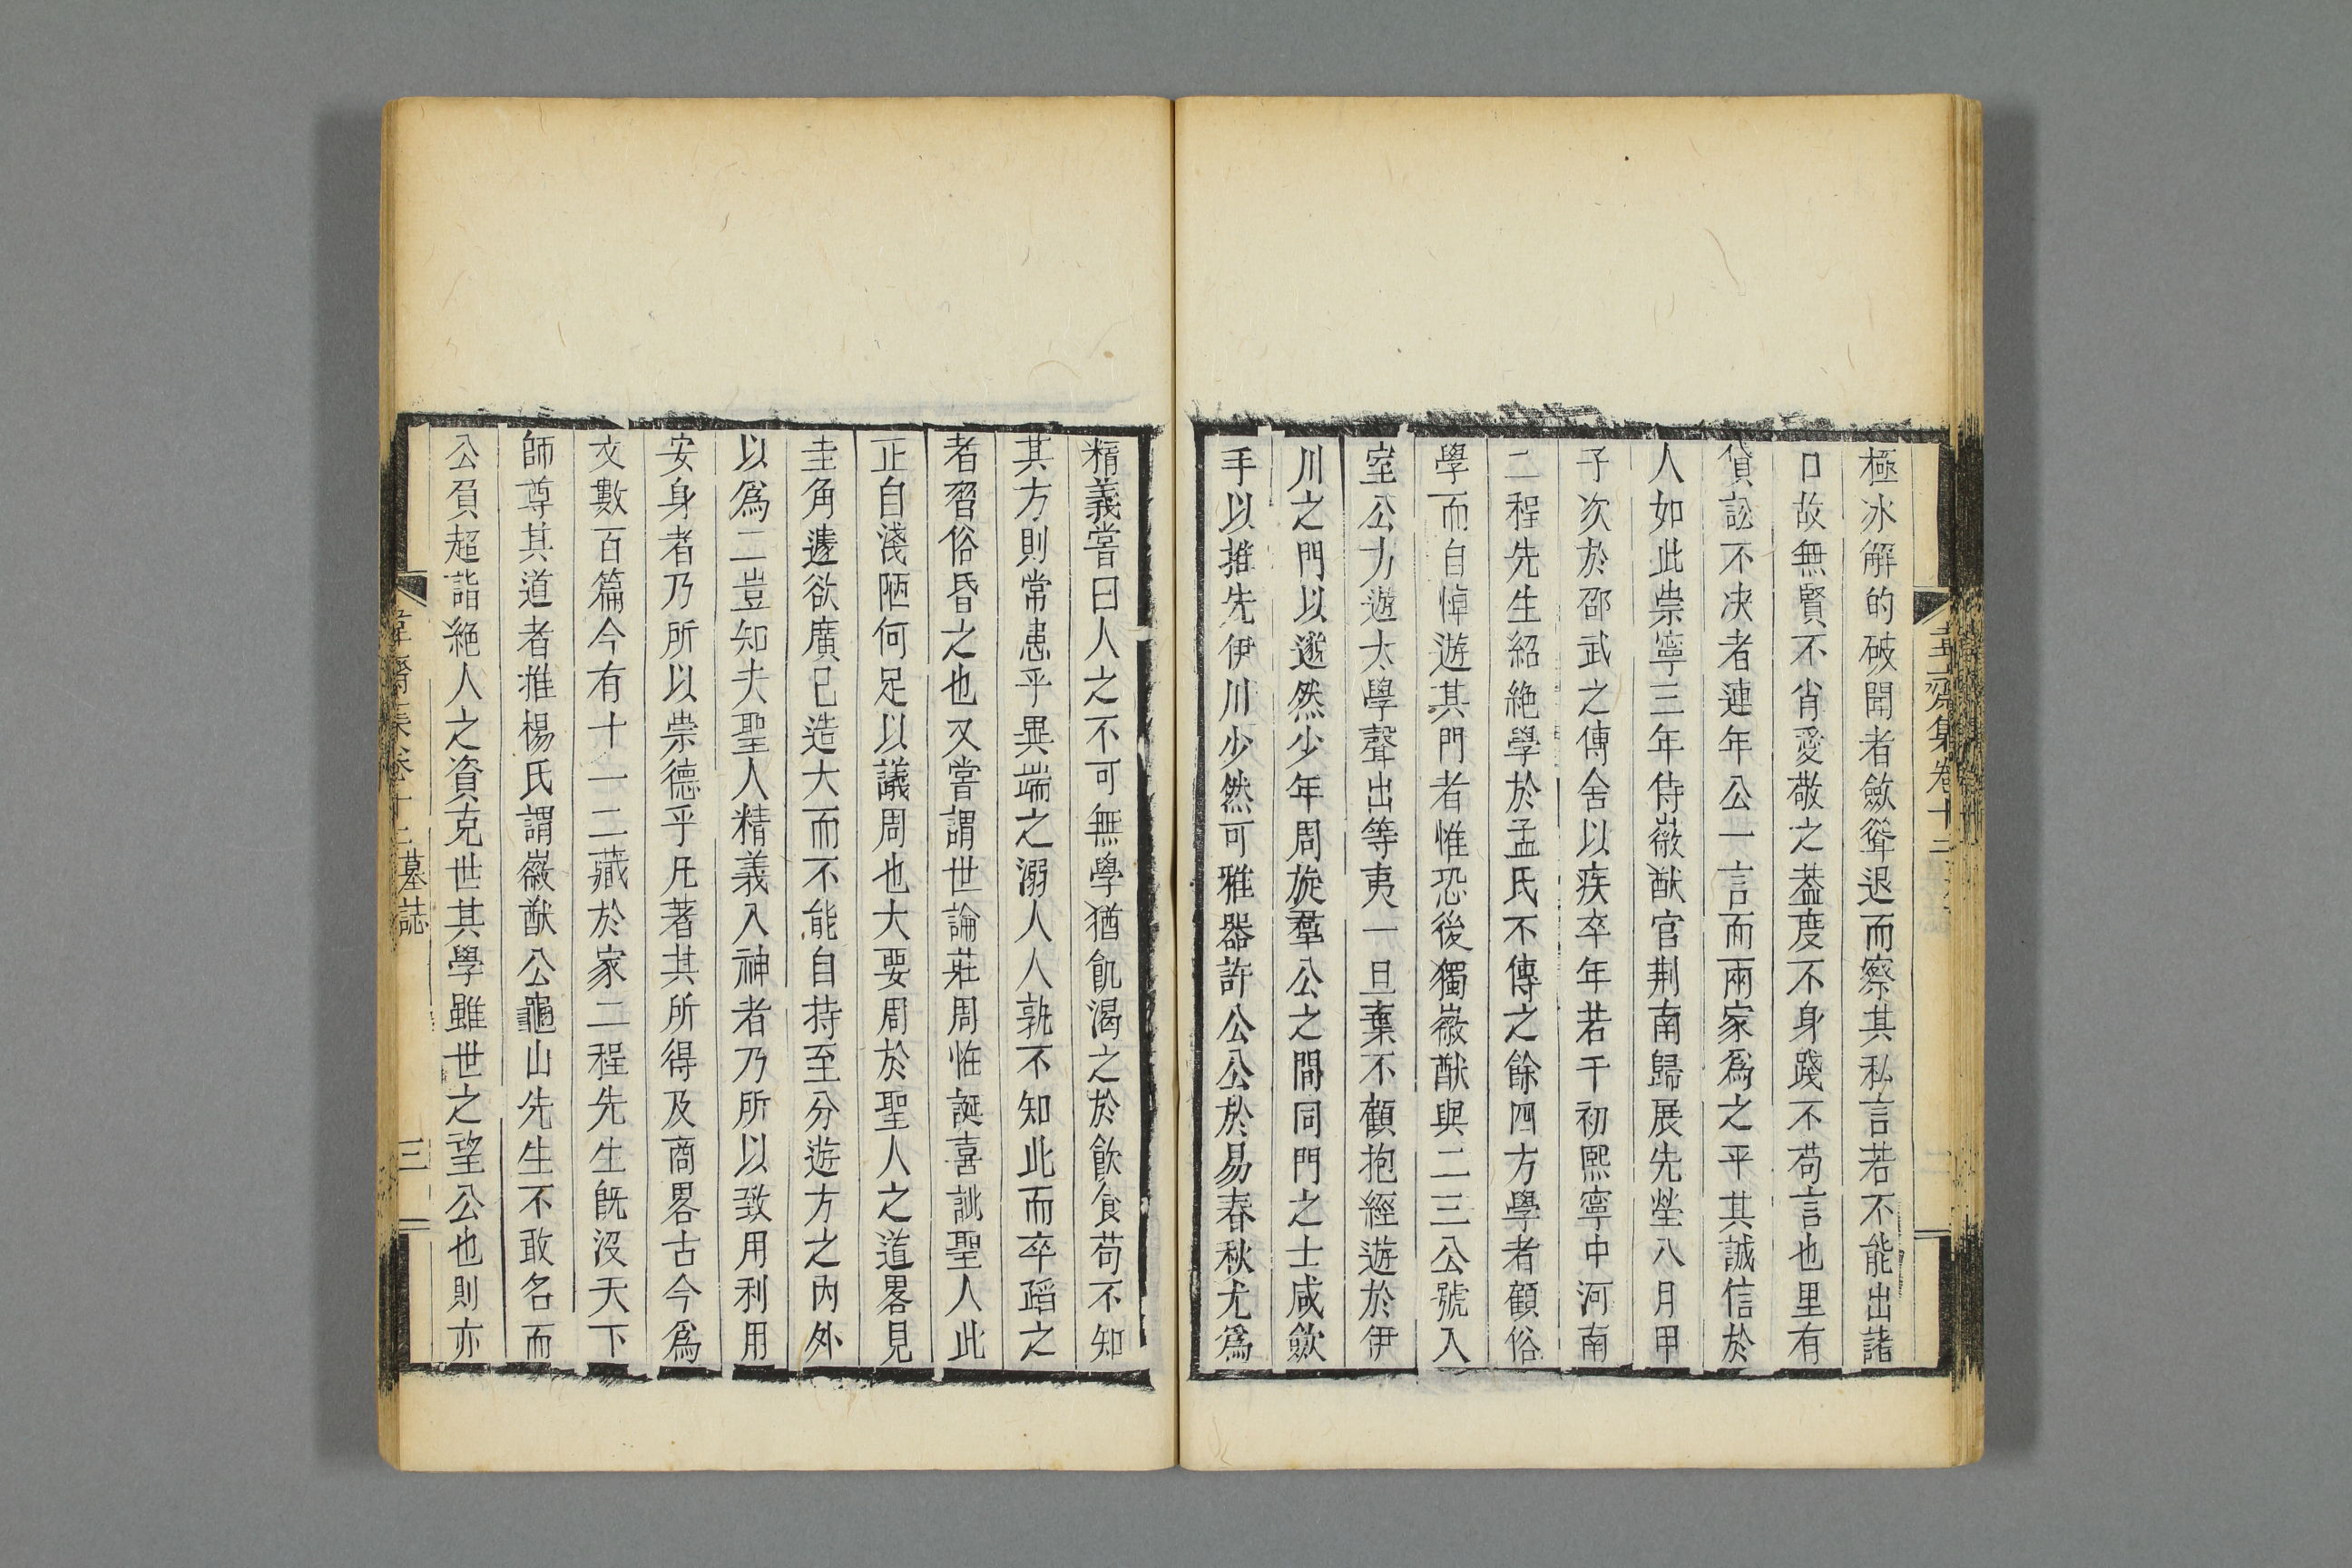 韋齋集卷十二
極冰解的破聞者歛聳退而察其私言若不能出諸
口故無賢不肖愛敬之葢度不身踐不苟言也里有
貸訟不决者連年公一言而兩家爲之平其誠信於
人如此崇寧三年侍徽猷官荆南歸展先塋八月甲
子次於邵武之傳舍以疾卒年若干初熙寧中河南
二程先生紹絶學於孟氏不傳之餘四方學者顧俗
學而自悼遊其門者惟恐後獨徽猷與二三公號入
室公力遊太學聲出等夷一旦棄不顧抱經遊於伊
川之門以邃然少年周旋羣公之間同門之士咸歛
手以推先伊川少然可雅器許公公於易春秋尤爲
精義嘗曰人之不可無學猶飢渴之於飲食苟不知
其方則常患乎異端之溺人人孰不知此而卒蹈之
者習俗昏之也又嘗謂世論莊周恠誕喜訿聖人此
正自淺陋何足以議周也大要周於聖人之道畧見
圭角遽欲廣已造大而不能自持至分遊方之内外
以爲二豈知夫聖人精義入神者乃所以致用利用
安身者乃所以崇德乎凡著其所得及商畧古今爲
文數百篇今有十一二藏於家二程先生旣沒天下
師尊其道者推楊氏謂徽猷公龜山先生不敢名而
公負超詣絶人之資克世其學雖世之望公也則亦
韋齋集卷十二 墓誌 三